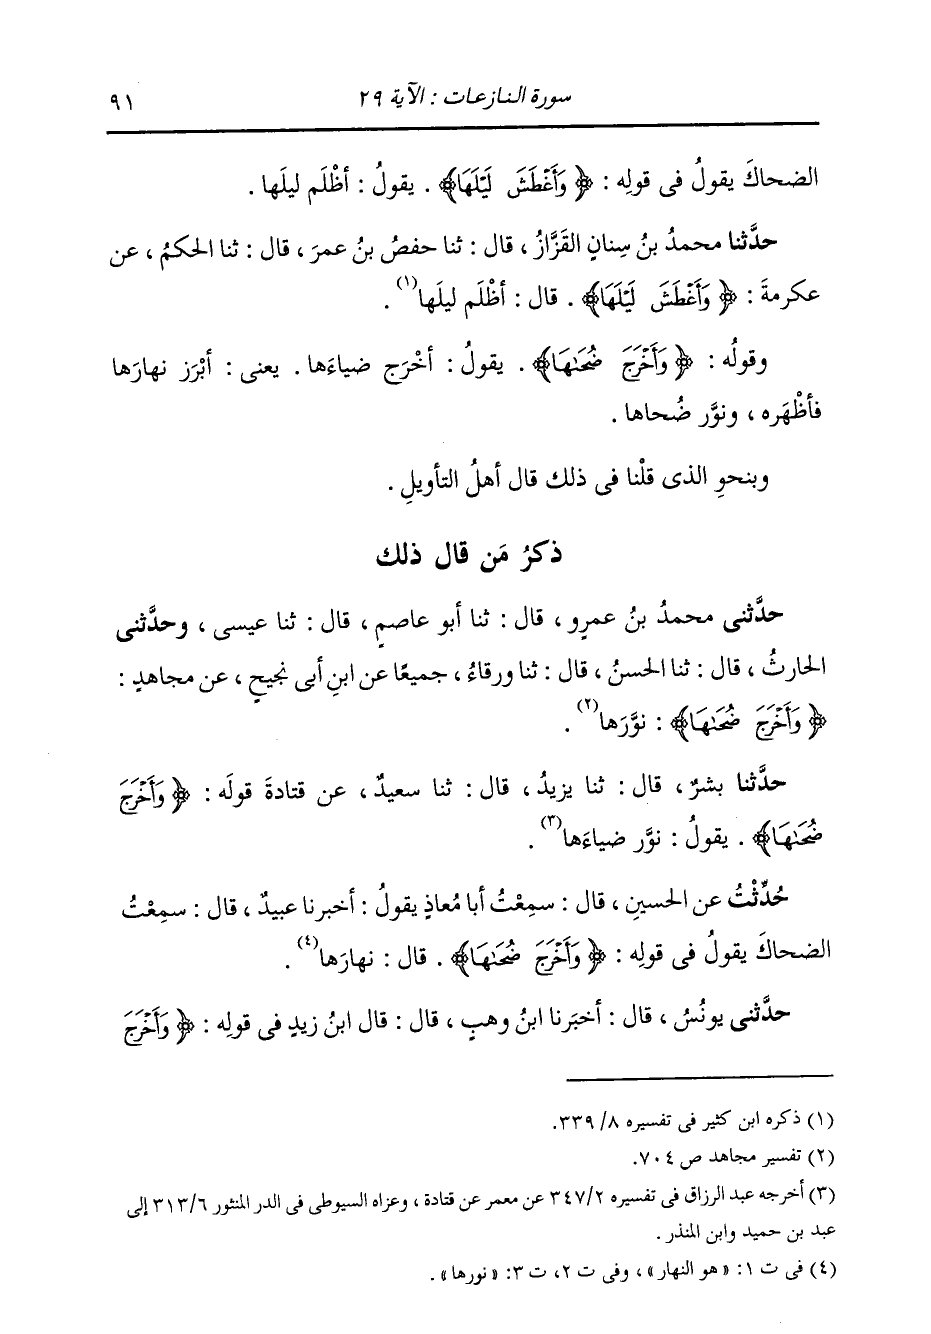 سورة النازعات : الآية ٢٩
٩١
الضحاكَ يقولُ فى قولِه : ﴿ وَأَغْطَشَ لَيْلَهَا﴾ . يقولُ : أظْلَم ليلَها .
حدَّثنا محمدُ بنُ سِنانٍ القَزَّازُ ، قال : ثنا حفصُ بنُ عمرَ ، قال : ثنا الحكمُ ، عن
عكرمةَ : ﴿ وَأَغْطَشَ لَيْلَهَا﴾ . قال : أظْلَم ليلَها(١) .
وقولُه : ﴿ وَأَخْرَجَ ضُحَىٰهَا﴾ . يقولُ : أخْرَج ضياءَها . يعنى : أبْرَز نهارَها
فأظْهَره ، ونوَّر ضُحاها .
وبنحوِ الذى قلْنا فى ذلك قال أهلُ التأويلِ .
ذكرُ مَن قال ذلك
حدَّثنى محمدُ بنُ عمرٍو ، قال : ثنا أبو عاصمٍ ، قال : ثنا عيسى ، وحدَّثنى
الحارثُ ، قال : ثنا الحسنُ ، قال : ثنا ورقاءُ ، جميعًا عن ابنِ أبى نجيحٍ ، عن مجاهدٍ :
﴿ وَأَخْرَجَ ضُحَىٰهَا﴾ : نوَّرَها(٢) .
حدَّثنا بشرٌ ، قال : ثنا يزيدُ ، قال : ثنا سعيدٌ ، عن قتادةَ قولَه : ﴿ وَأَخْرَجَ
ضُحَىٰهَا﴾ . يقولُ : نوَّر ضياءَها(٣) .
حُدِّثْتُ عن الحسينِ ، قال : سمِعْتُ أبا مُعاذٍ يقولُ : أخبرنا عبيدٌ ، قال : سمِعْتُ
الضحاكَ يقولُ فى قولِه : ﴿ وَأَخْرَجَ ضُحَىٰهَا﴾ . قال : نهارَها(٤) .
حدَّثنى يونُسُ ، قال : أخبَرنا ابنُ وهبٍ ، قال : قال ابنُ زيدٍ فى قولِه : ﴿ وَأَخْرَجَ
(١) ذكره ابن كثير فى تفسيره ٨/ ٣٣٩.
(٢) تفسير مجاهد ص ٧٠٤.
(٣) أخرجه عبد الرزاق فى تفسيره ٣٤٧/٢ عن معمر عن قتادة ، وعزاه السيوطى فى الدر المنثور ٣١٣/٦ إلى
عبد بن حميد وابن المنذر .
(٤) فى ت ١: «هو النهار» ، وفى ت ٢، ت ٣: «نورها» .